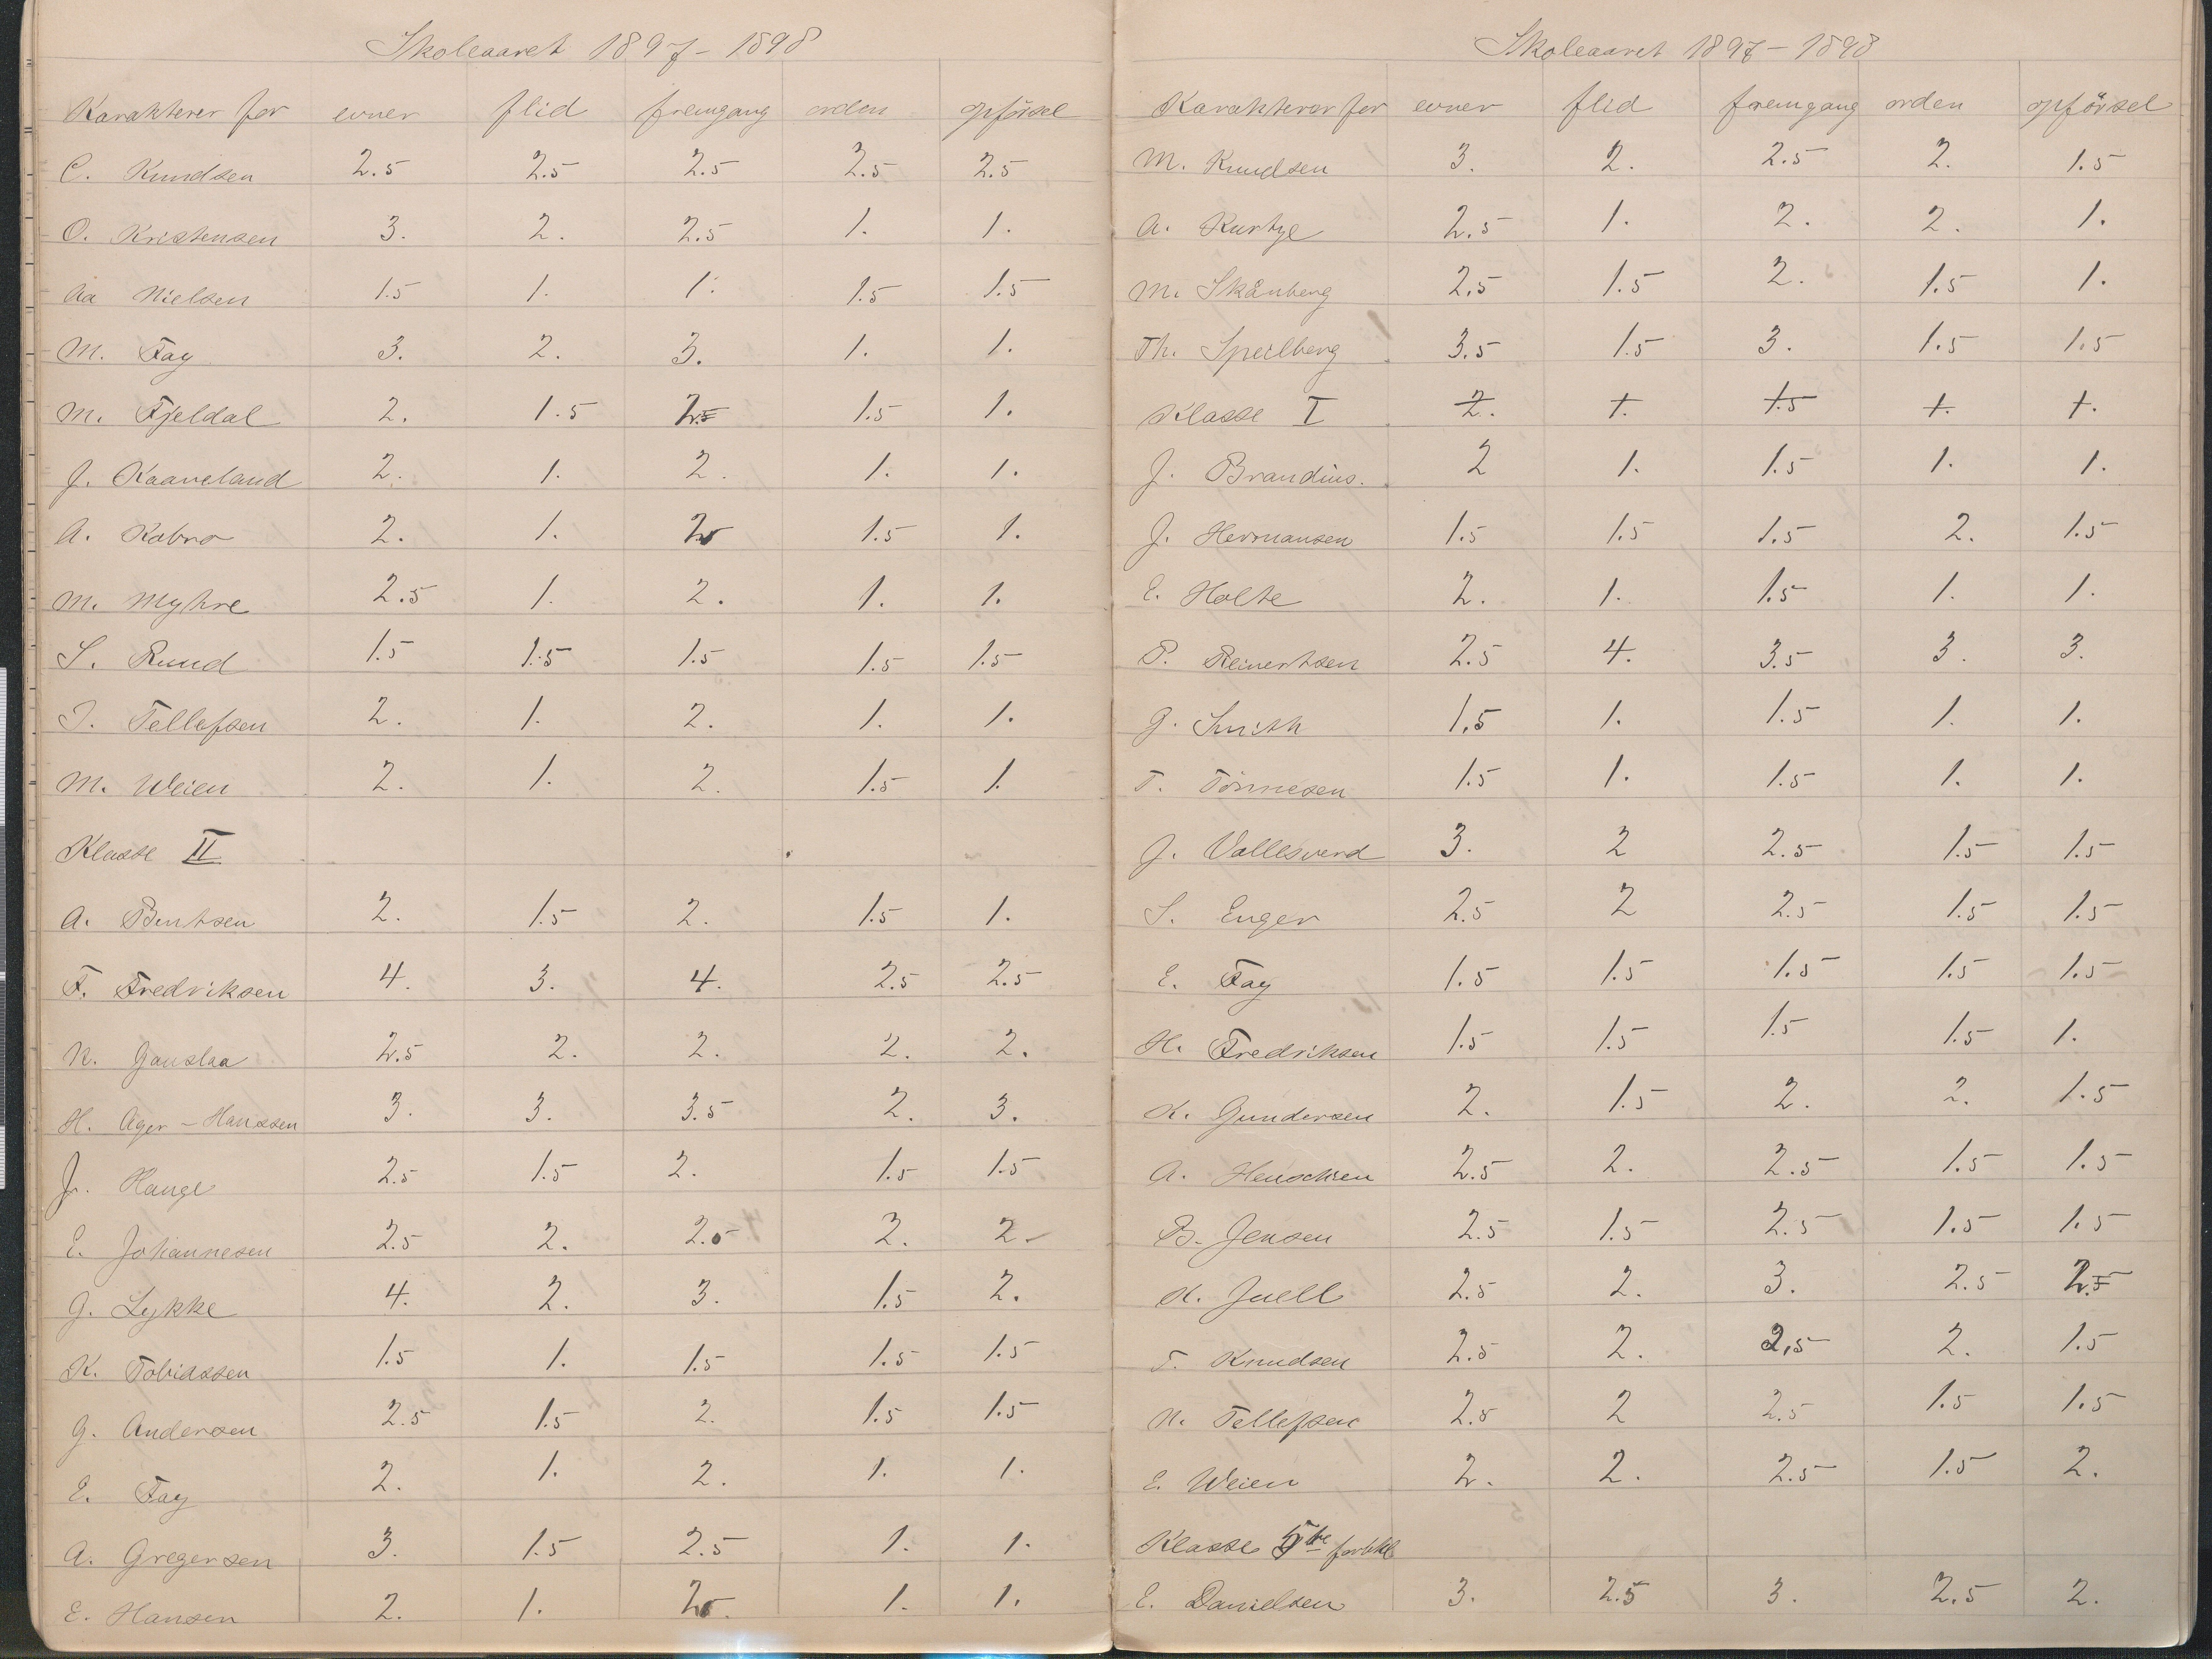 Skoleaaret 1897-1898
Karakterer for evner flid fremgang orden opförsel
C. Knudsen 2.5 2.5 2.5 2.5 2.5
O. Kristensen 3. 2. 2.5 1. 1.
Aa Nielsen 1.5 1. 1. 1.5 1.5
M. Fay 3. 2. 3. 1. 1.
M. Fjeldal 2. 1.5 1.5 1.
J. Kaaveland 2. 1. 2. 1. 1.
A. Kobro 2. 1. 1.5 1.
M. Myhre 2.5 1. 2. 1. 1.
S. Ruud 1.5 1.5 1.5 1.5 1.5
T. Tellefsen 2. 1. 2. 1. 1.
M. Weien 2. 1. 2. 1.5 1.
Klasse II
A. Bentsen 2. 1.5 2. 1.5 1.
F. Fredriksen 4. 3. 4. 2.5 2.5
N. Gauslaa 2.5 2. 2. 2. 2.
H. Ager-Hanssen 3. 3. 3.5 2. 3.
Fr. Hauge 2.5 1.5 2. 1.5 1.5
E. Johannesen 2.5 2. 2.5 2. 2.
G. Lykke 4. 2. 3. 1.5 2.
K. Tobiassen 1.5 1. 1.5 1.5 1.5
G. Andersen 2.5 1.5 2. 1.5 1.5
E. Fay 2. 1. 2. 1. 1.
A. Gregersen 3. 1.5 2.5 1. 1.
E. Hansen 2. 1. 1. 1.
Skoleaaret 1897-1898
Karakterer for evner flid fremgang orden opförsel
M. Knudsen 3. 2. 2.5 2. 1.5
A. Kurtze 2.5 1. 2. 2. 1.
M. Skånberg 2.5 1.5 2. 1.5 1.
Th. Speilberg 3.5 1.5 3. 1.5 1.5
Klasse I 2. 1. 1.5 1. 1.
J. Brandius. 2 1. 1.5 1. 1.
J. Hermansen 1.5 1.5 1.5 2. 1.5
E. Holte 2. 1. 1.5 1. 1.
P. Reinertsen 2.5 4. 3.5 3. 3.
G. Smith 1.5 1. 1.5 1. 1.
T. Tönnesen 1.5 1. 1.5 1. 1.
J. Vallesverd 3. 2 2.5 1.5 1.5
S. Enger 2.5 2 2.5 1.5 1.5
E. Fay 1.5 1.5 1.5 1.5 1.5
H. Fredriksen 1.5 1.5 1.5 1.5 1.
K. Gundersen 2. 1.5 2. 2. 1.5
A. Henschien 2.5 2. 2.5 1.5 1.5
B. Jensen 2.5 1.5 2.5 1.5 1.5
K. Juell 2.5 2. 3. 2.5
T. Knudsen 2.5 2. 2.5 2. 1.5
N. Tellefsen 2.5 2 2.5 1.5 1.5
E. Weien 2. 2. 2.5 1.5 2.
Klasse 5te
E. Danielsen 3. 2.5 3. 2.5 2.